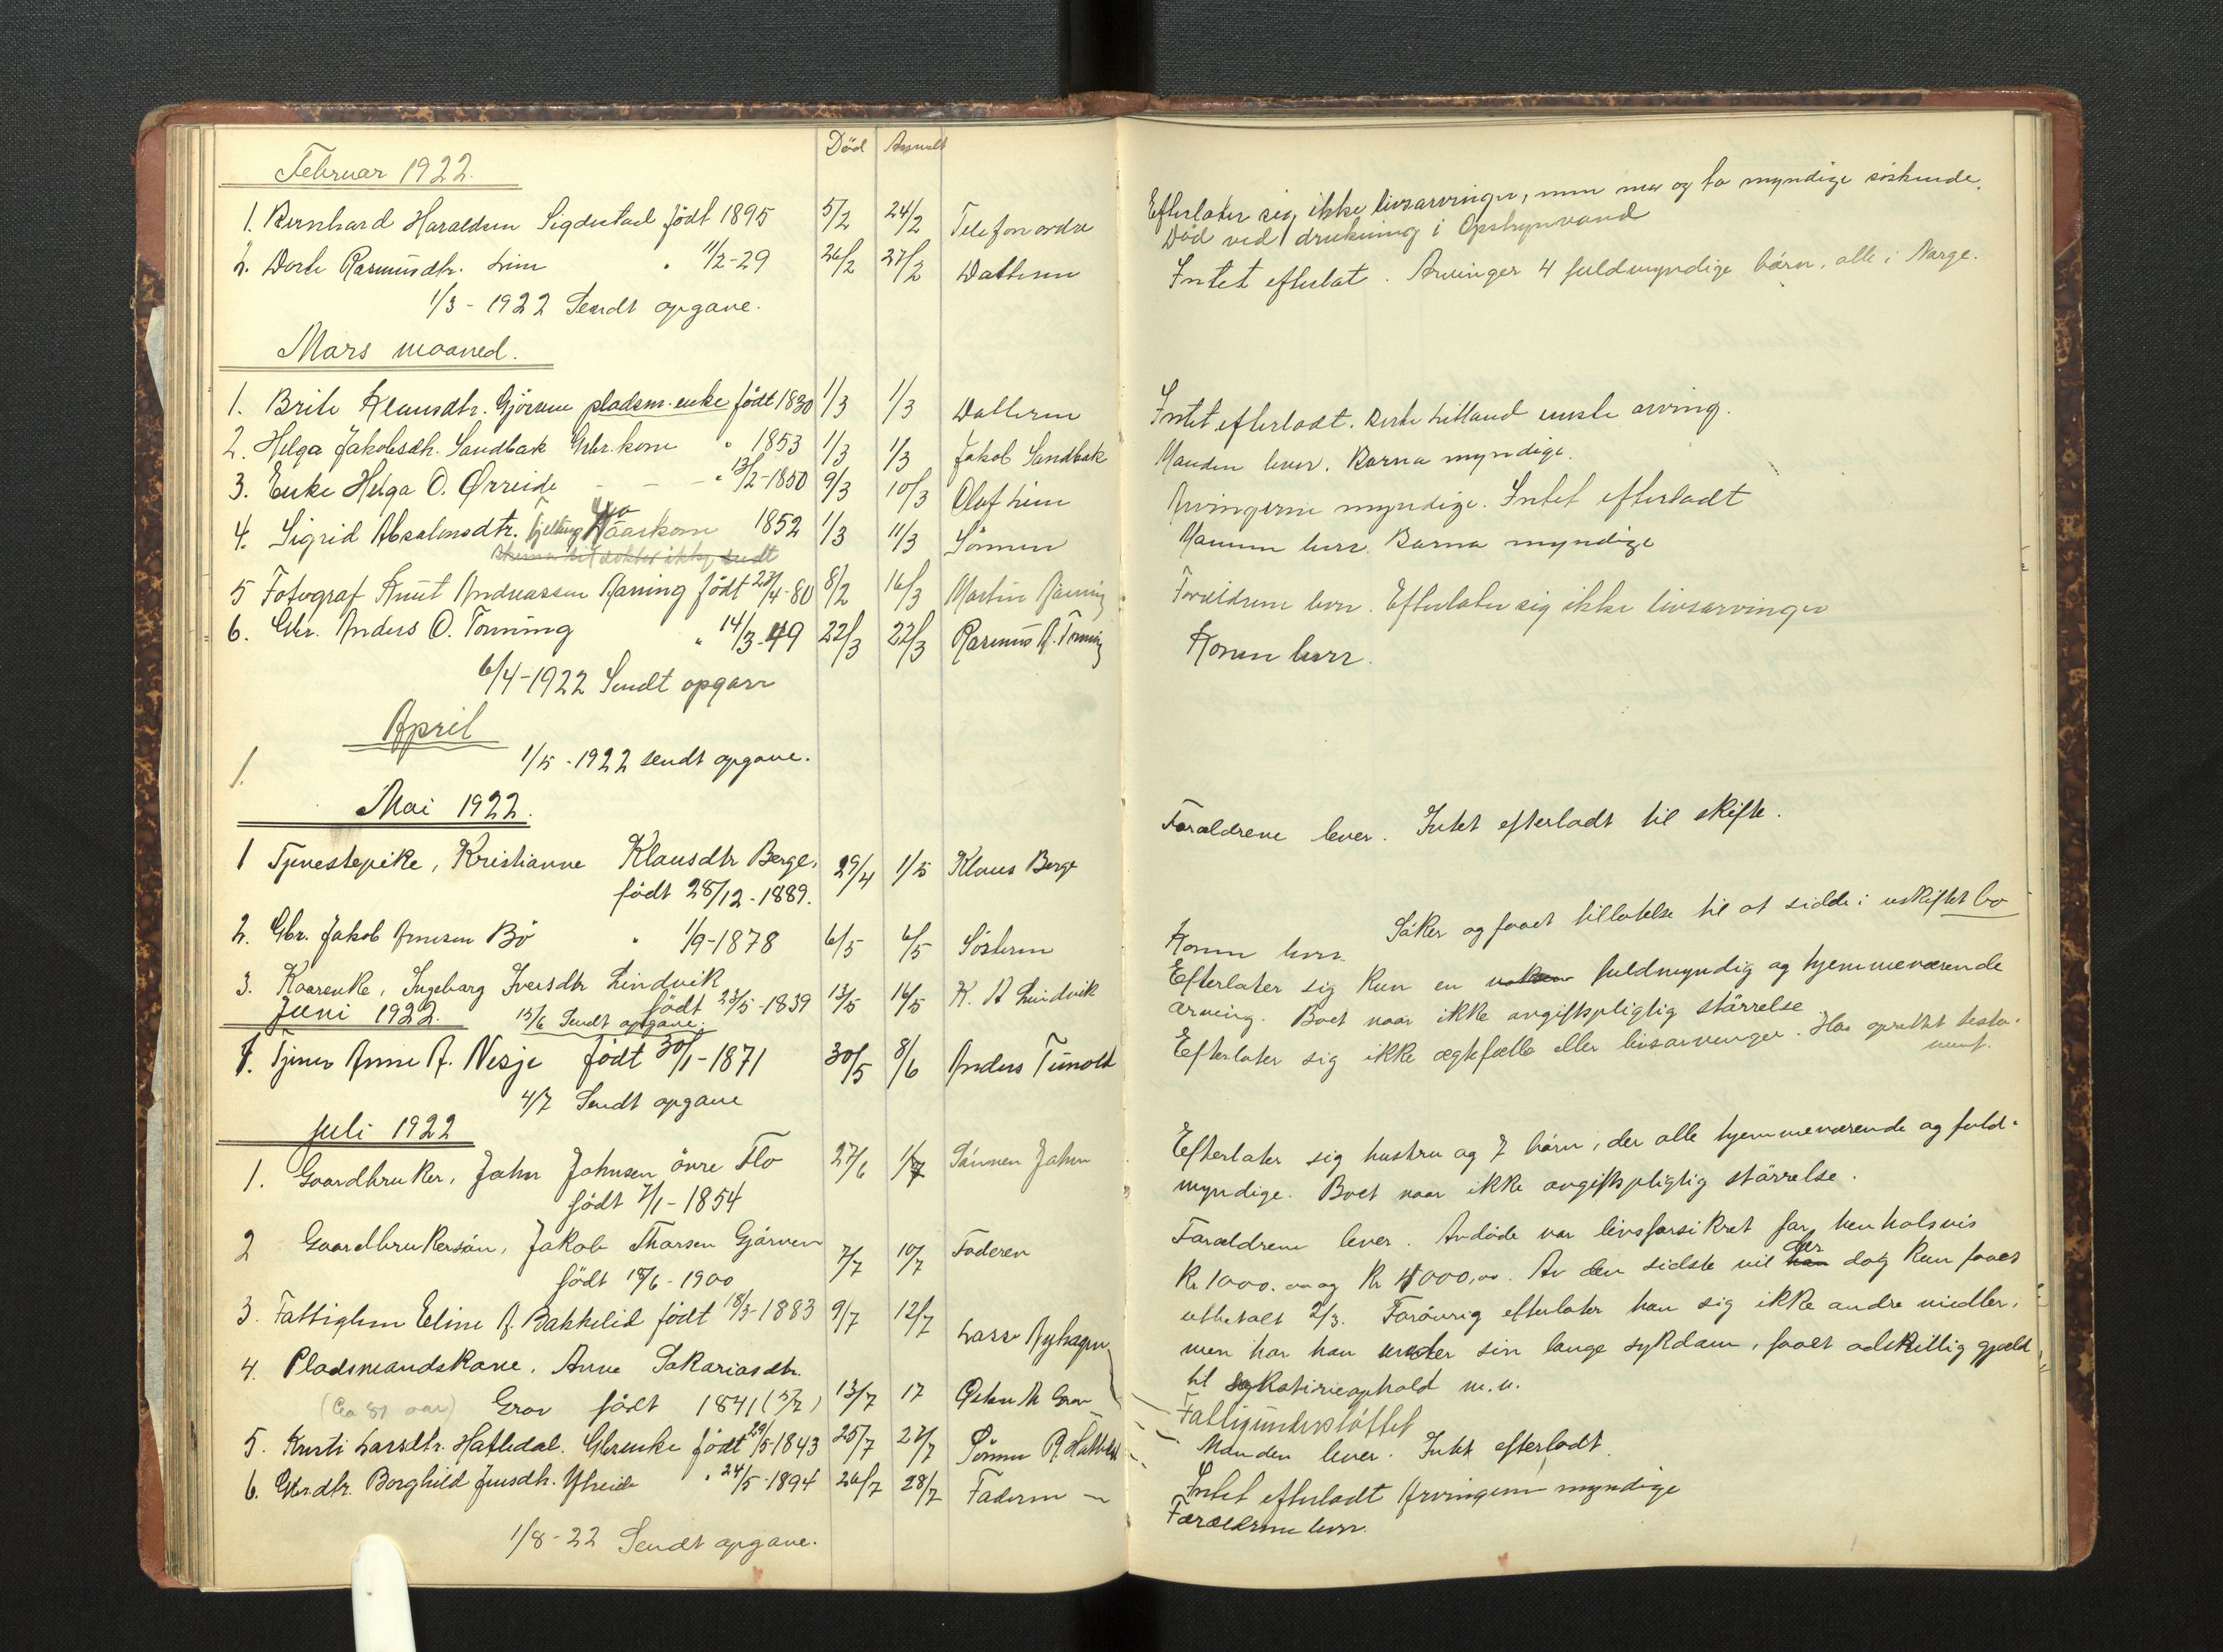 Död Anmelt
Februar 1922.
1. Bernhard Haraldsen Sigdestad födt 1895 5/2 24/2 Telefonordre
2. Dorte Rasmusdtr. Lim " 11/2-29 26/2 27/2 Datteren
1/3 - 1922 Sendt opgave.
Mars maaned.
1. Brite Klausdtr. Gjörven pladsm. enke födt 1830 1/3 1/3 Datteren
2. Helga Jakobsdtr. Sandbak Gbr. kone " 1853 1/3 1/3 Jakob Sandbak
3. Enke Helga O. Ørreide - - - " 13/2-1850 9/3 10/3 Olaf Lim
4. Sigrid Absalonsdtr. Fjelling Kaarkone 1852 1/3 11/3 Sönnen
5 Fotograf Knut Andreassen Raning födt 23/4-80 8/2 16/3 Martin Raning
6. Gbr. Anders O. Tonning " 14/3-49 22/3 22/3 Rasmus A. Tonning
6/4-1922 Sendt opgave
April
1. 1/5 - 1922 sendt opgave.
Mai 1922.
1 Tjenestepike, Kristianne Klausdtr Berge, 29/4 1/5 Klaus Berge
födt 28/12 - 1889.
2. Gbr. Jakob Arnesen Bö " 1/9-1878 6/5 6/5 Sösteren
3. Kaarenke, Ingeborg Iversdtr Lindvik
födt 23/5-1839 13/5 16/5 K. A Lindvik
Juni 1922. 13/6 Sendt opgave.
1. Tjener Anne A. Nesje födt 30/1-1871 30/5 8/6 Anders Tunold
4/7 Sendt opgave
Juli 1922
1. Gaardbruker, Jahn Johnsen övre Flo 27/6 1/7 Sönnen Jahn
födt 7/1 - 1854
2 Gaardbrukersön, Jakob Thorsen Gjörven 7/7 10/7 Faderen
födt 18/6 - 1900
3. Fattiglem Eline A. Bakkelid födt 18/3-1883 9/7 12/7 Lasse Nyhagen
4. Pladsmandskone, Anne Sakariasdtr.
(Ca 81 aar) Grov födt 1841 (3/7) 13/7 17 Peder M Grov
5. Kristi Larsdtr. Hafledal. Gbrenke födt 29/5-1843 25/7 27/7 Sönnen R. Hafledal
6. Gbr.dtr. Borghild Jensdtr. Ytreide " 24/5-1894 26/7 28/7 Faderen
1/8-22 Sendt opgave.
Efterlater sig ikke livsarvinger, men mor og to myndige söskende.
Död ved drukning i Opstrynvand
Intet efterlat. Arvinger 4 fuldmyndige börn, alle i Norge.
Intet efterladt. Berte Lilland eneste arving.
Manden lever. Barna myndige.
Arvingerne myndige. Intet efterladt
Mannen lever. Barna myndige
Foreldrene lever. Efterlater sig ikke livsarvinger
Konen lever.
Forældrene lever. Intet efterladt til skifte.
Konen lever. Söker og faaet tillatelse til at sidde i uskiftet bo
Efterlater sig kun en fuldmyndig og hjemmeværende
arving. Boet naar ikke avgiftspligtig störrelse
Efterlater sig ikke ægtefælle eller livsarvinger. Har oprettet testa-
ment.
Efterlater sig hustru og 7 börn, der alle hjemmeværende og fuld-
myndige. Boet naar ikke avgiftspligtig störrelse.
Forældrene lever. Avdöde var livsforsikret for, henholdsvis
Kr 1000.00 og Kr 4000,00. Av den sidste vil der dog kun faaes
utbetalt 2/3. Forövrig efterlater han sig ikke andre midler,
men har han under sin lange sykdom, faaet adskillig gjæld
til sykehusophold m.v.
Fattigunderstöttet
Manden lever. Intet efterladt.
Intet efterladt Arvingerne myndige
Forældrene lever.